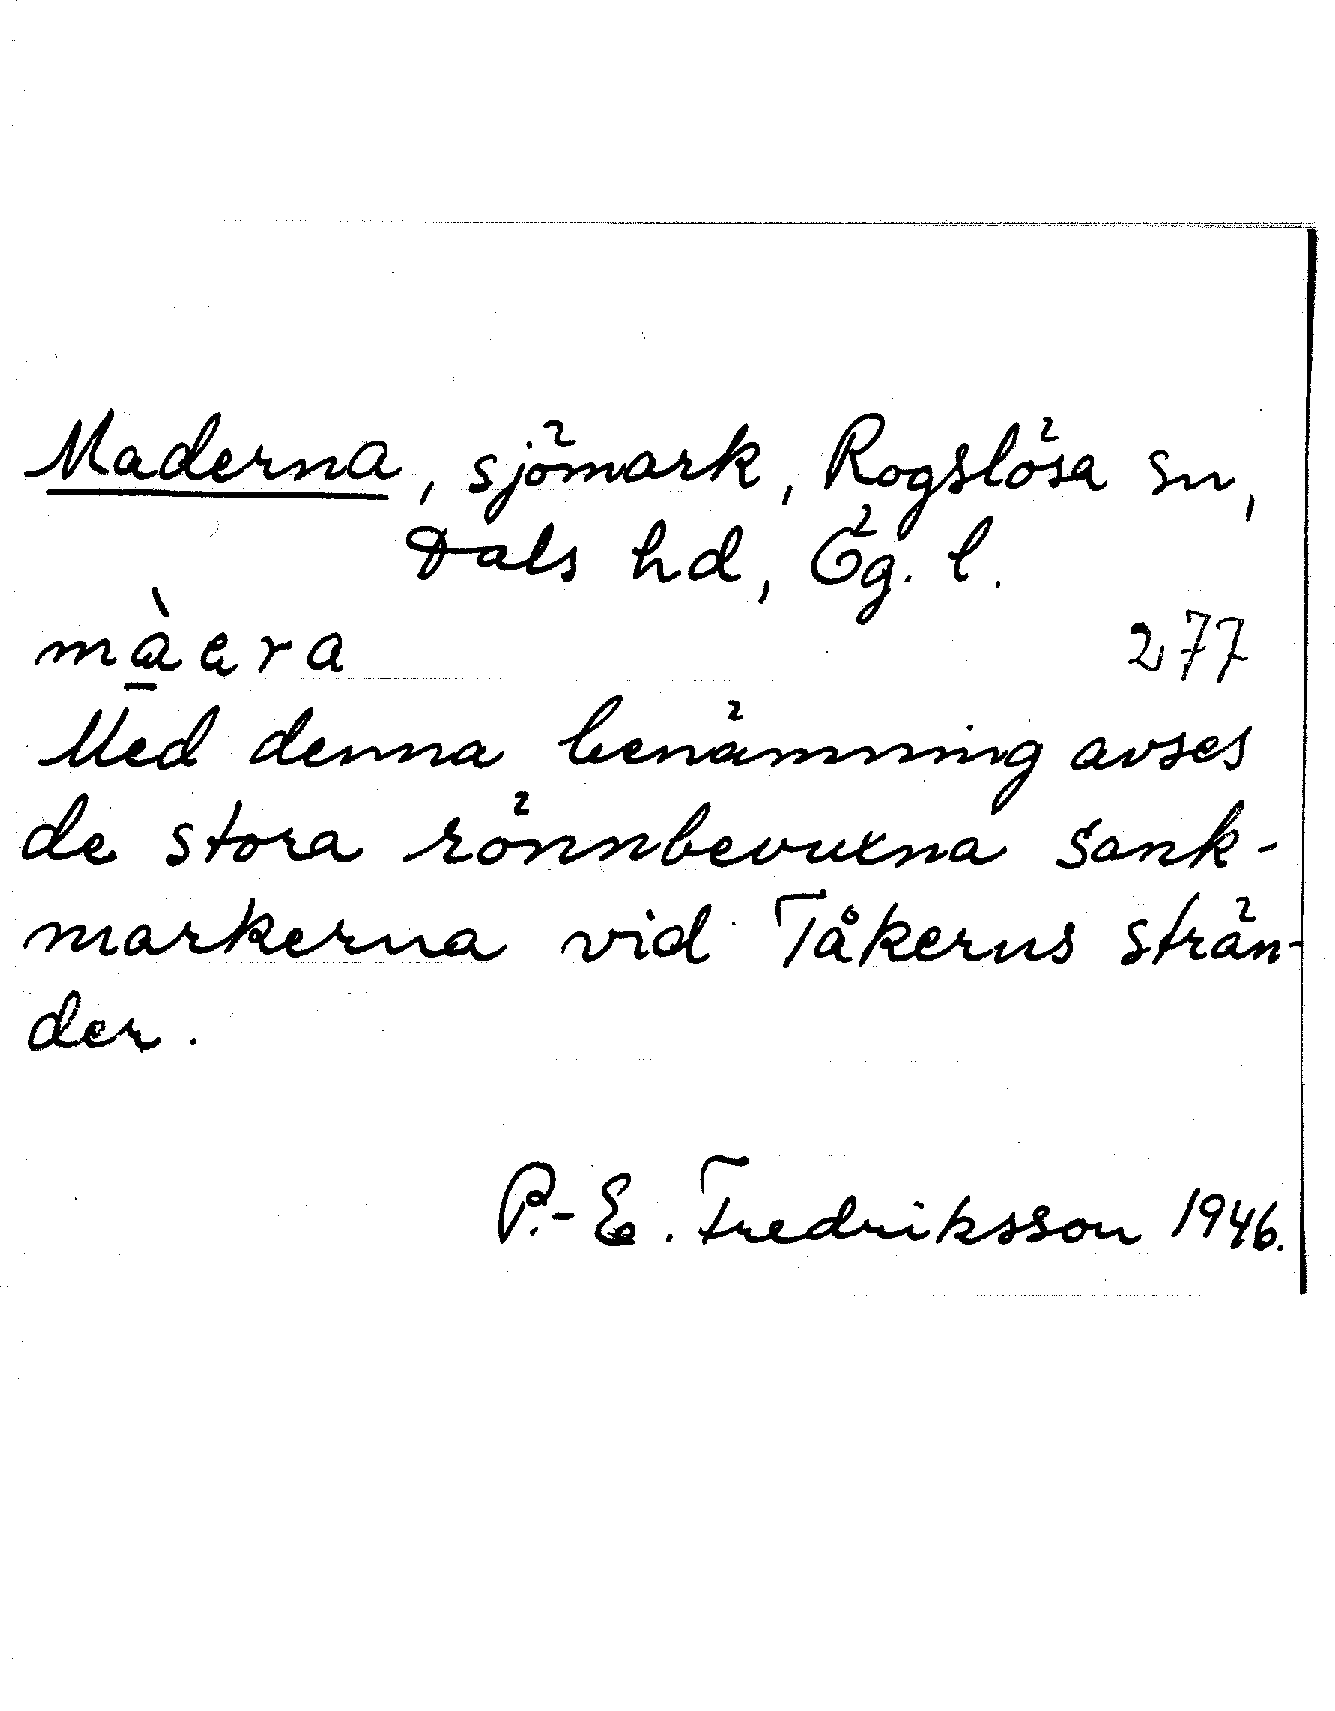 Maderna, sjömark, Rogslösa sn,
Dals hd, Ög. l.
màera 277
Med denna benämning avses
de stora rönnbevuxna sank-
markerna vid Tåkerns strän-
der.
P.-E. Fredriksson 1946.